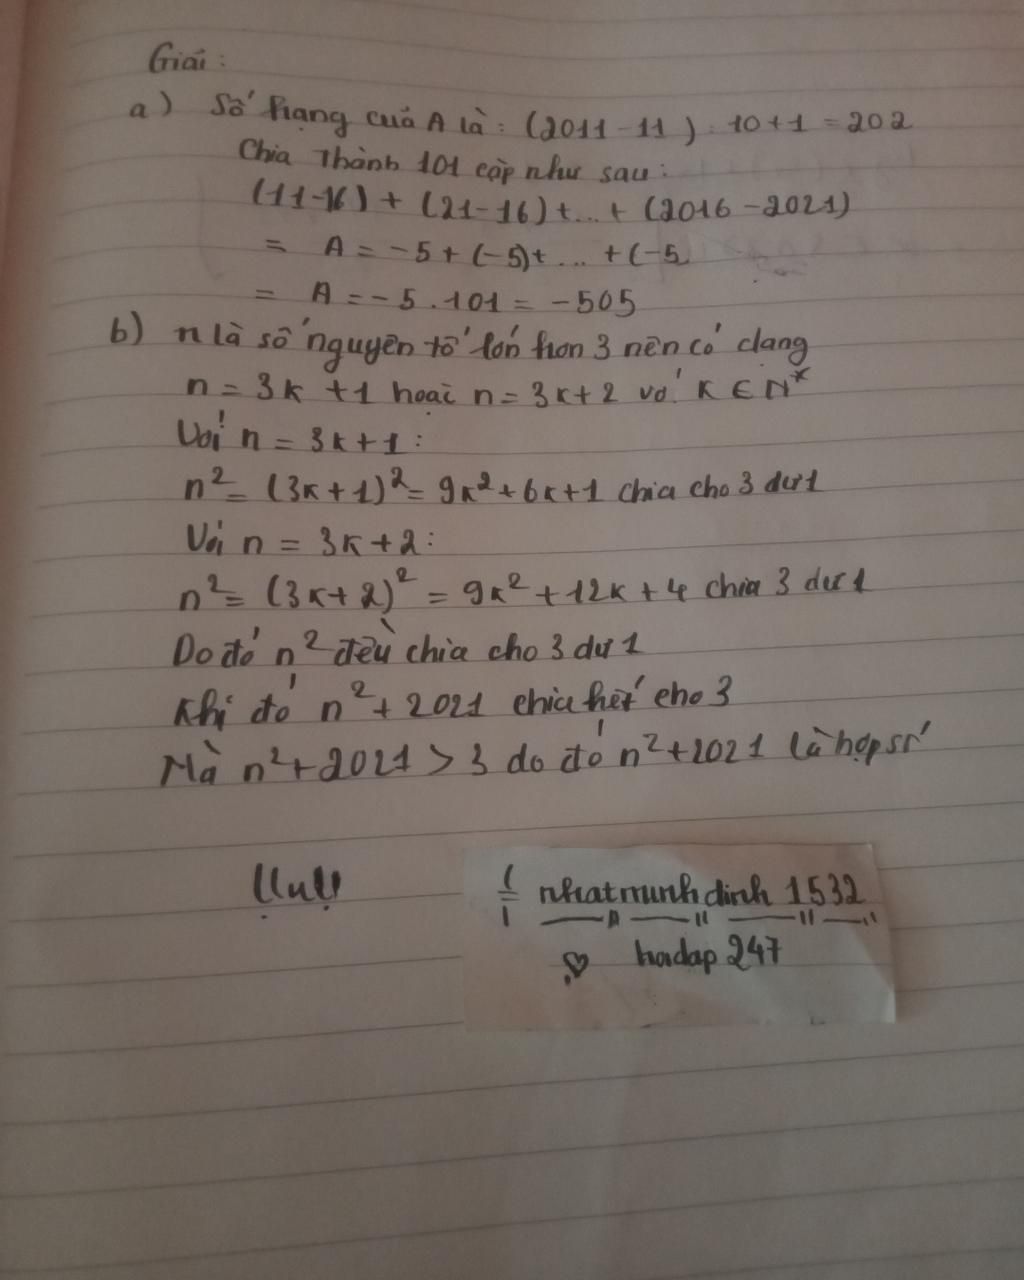 Giải :
a) Số hạng của A là : (2011 - 11) : 10 + 1 = 202
Chia thành 101 cặp như sau :
(11-16) + (21-16) + ... + (2016 - 2021)
= A = -5 + (-5) + ... + (-5
= A = -5 . 101 = -505
b) n là số nguyên tố lớn hơn 3 nên có dạng
n = 3k + 1 hoặc n = 3k + 2 với K ∈ N*
Với n = 3k + 1 :
n² = (3k + 1)² = 9k² + 6k + 1 chia cho 3 dư 1
Với n = 3k + 2 :
n² = (3k + 2)² = 9k² + 12k + 4 chia 3 dư 1
Do đó n² đều chia cho 3 dư 1
Khi đó n² + 2021 chia hết cho 3
Mà n² + 2021 > 3 do đó n² + 2021 là hợp số
nhatminhdinh 1532
hoidap 247